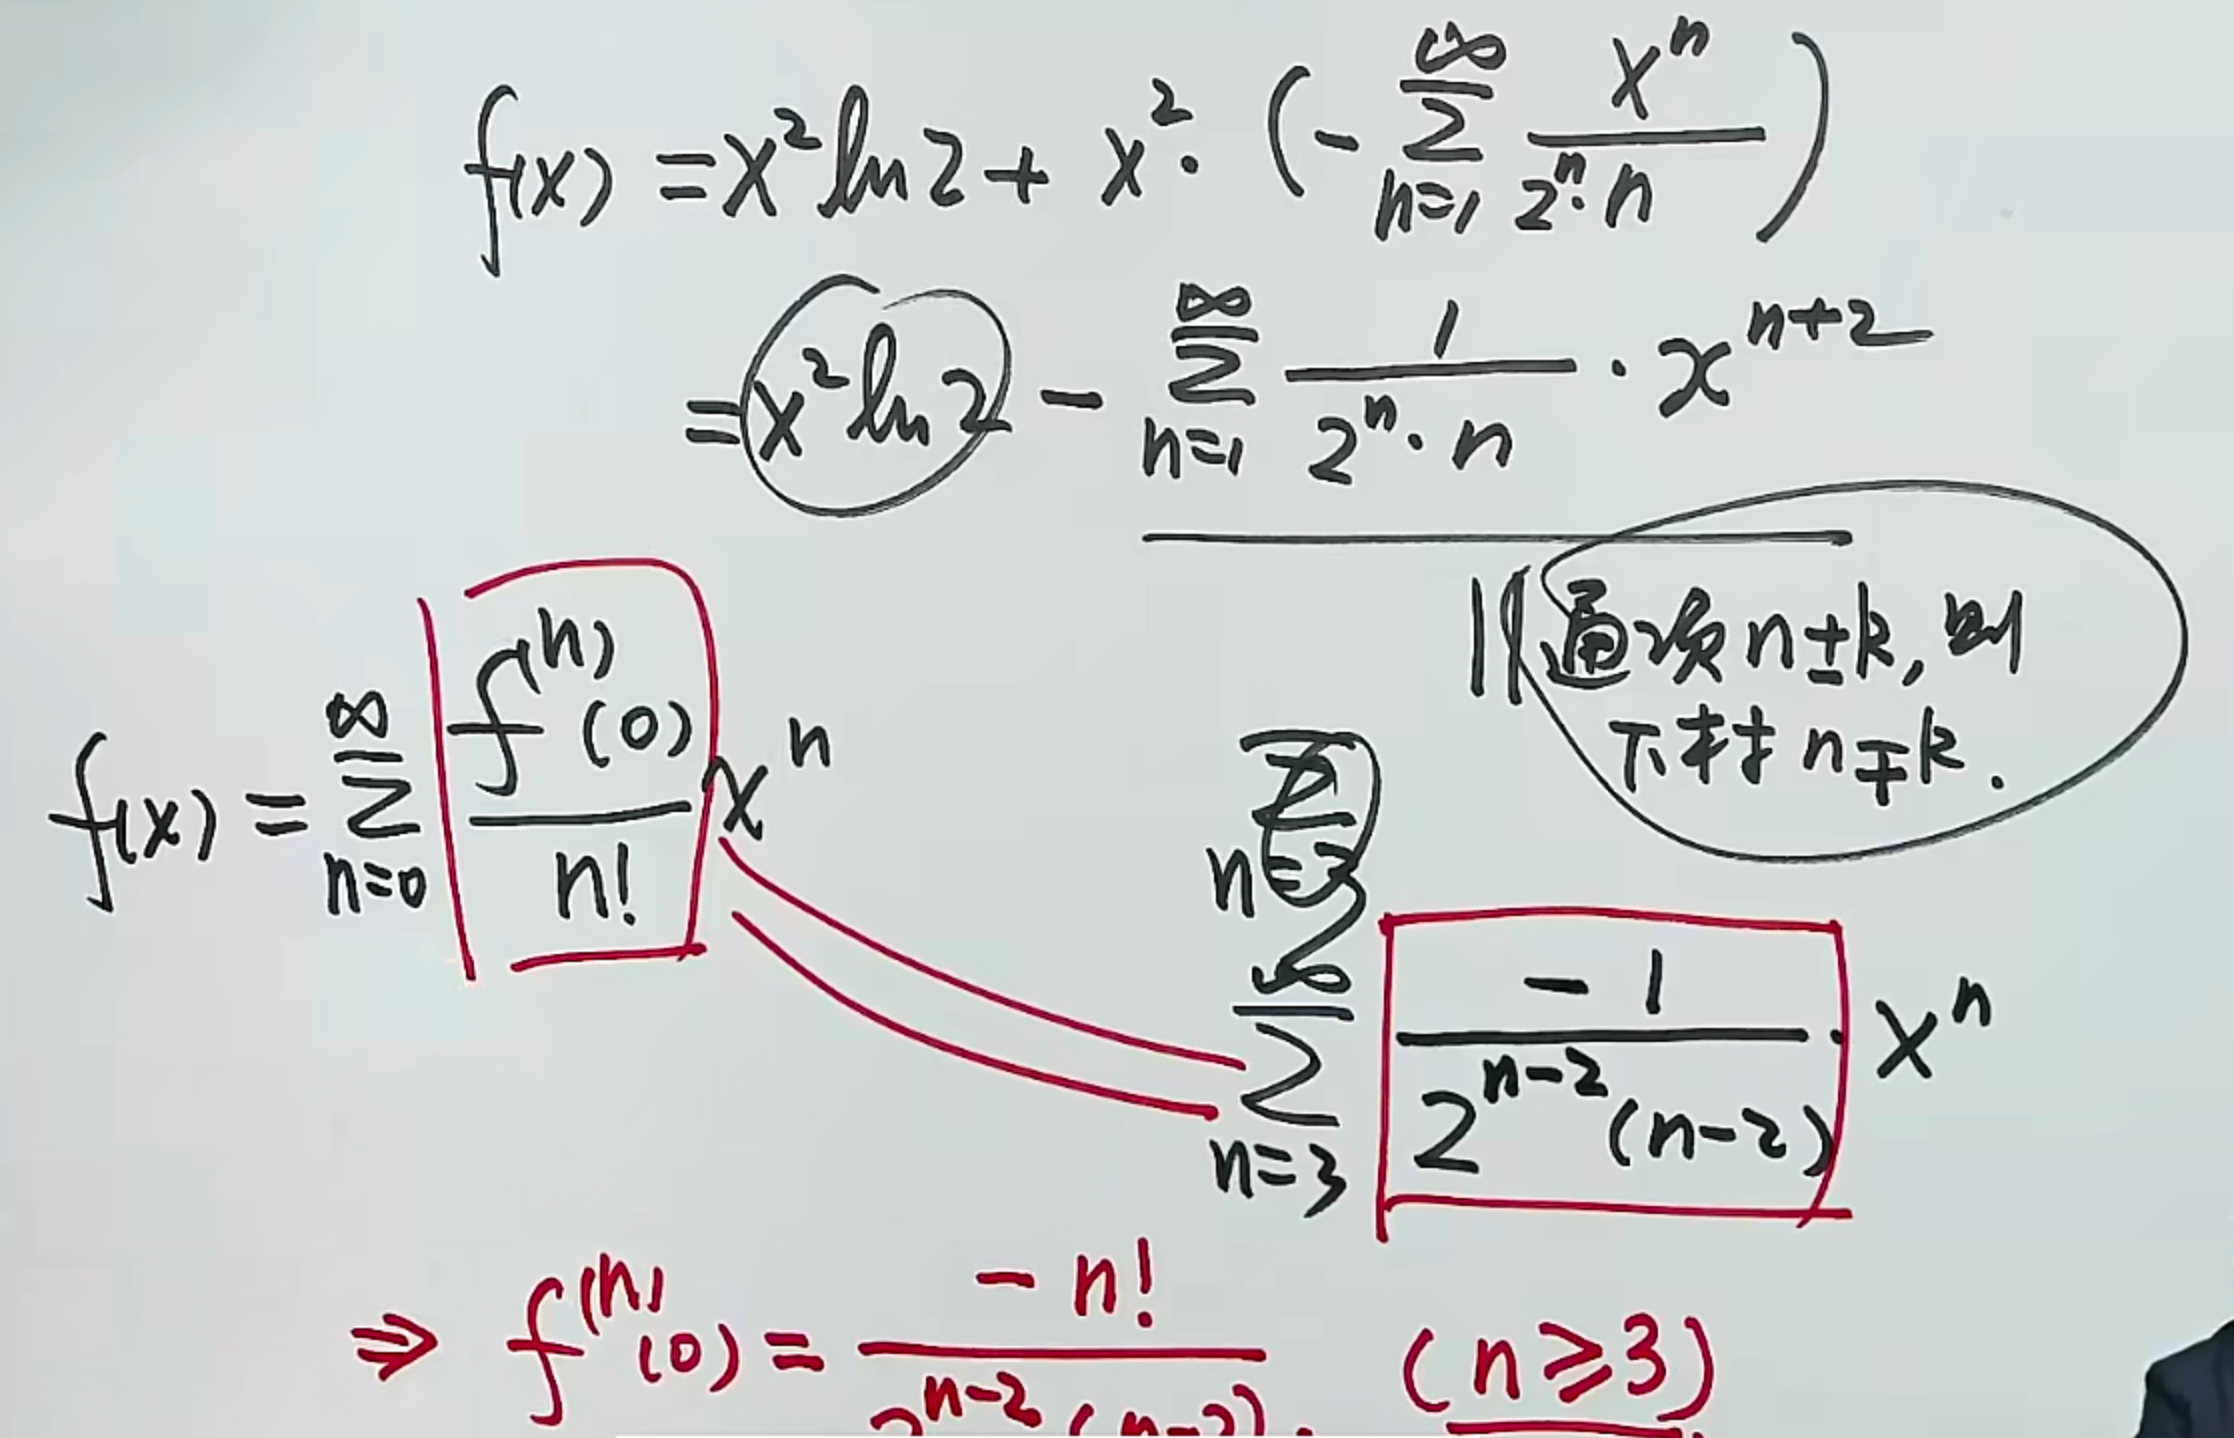 f(x) = x² ln2 + x² · (- ∑_{n=1}^{∞} x^n / (2^n · n))
= x² ln2 - ∑_{n=1}^{∞} 1 / (2^n · n) · x^{n+2}
|| 通项 n±k, 则
下标 n∓k.
f(x) = ∑_{n=0}^{∞} f^{(n)}(0) / n! x^n
∑_{n=3}^{∞} -1 / (2^{n-2} (n-2)) · x^n
⇒ f^{(n)}(0) = -n! / (2^{n-2} (n-2)). (n≥3)